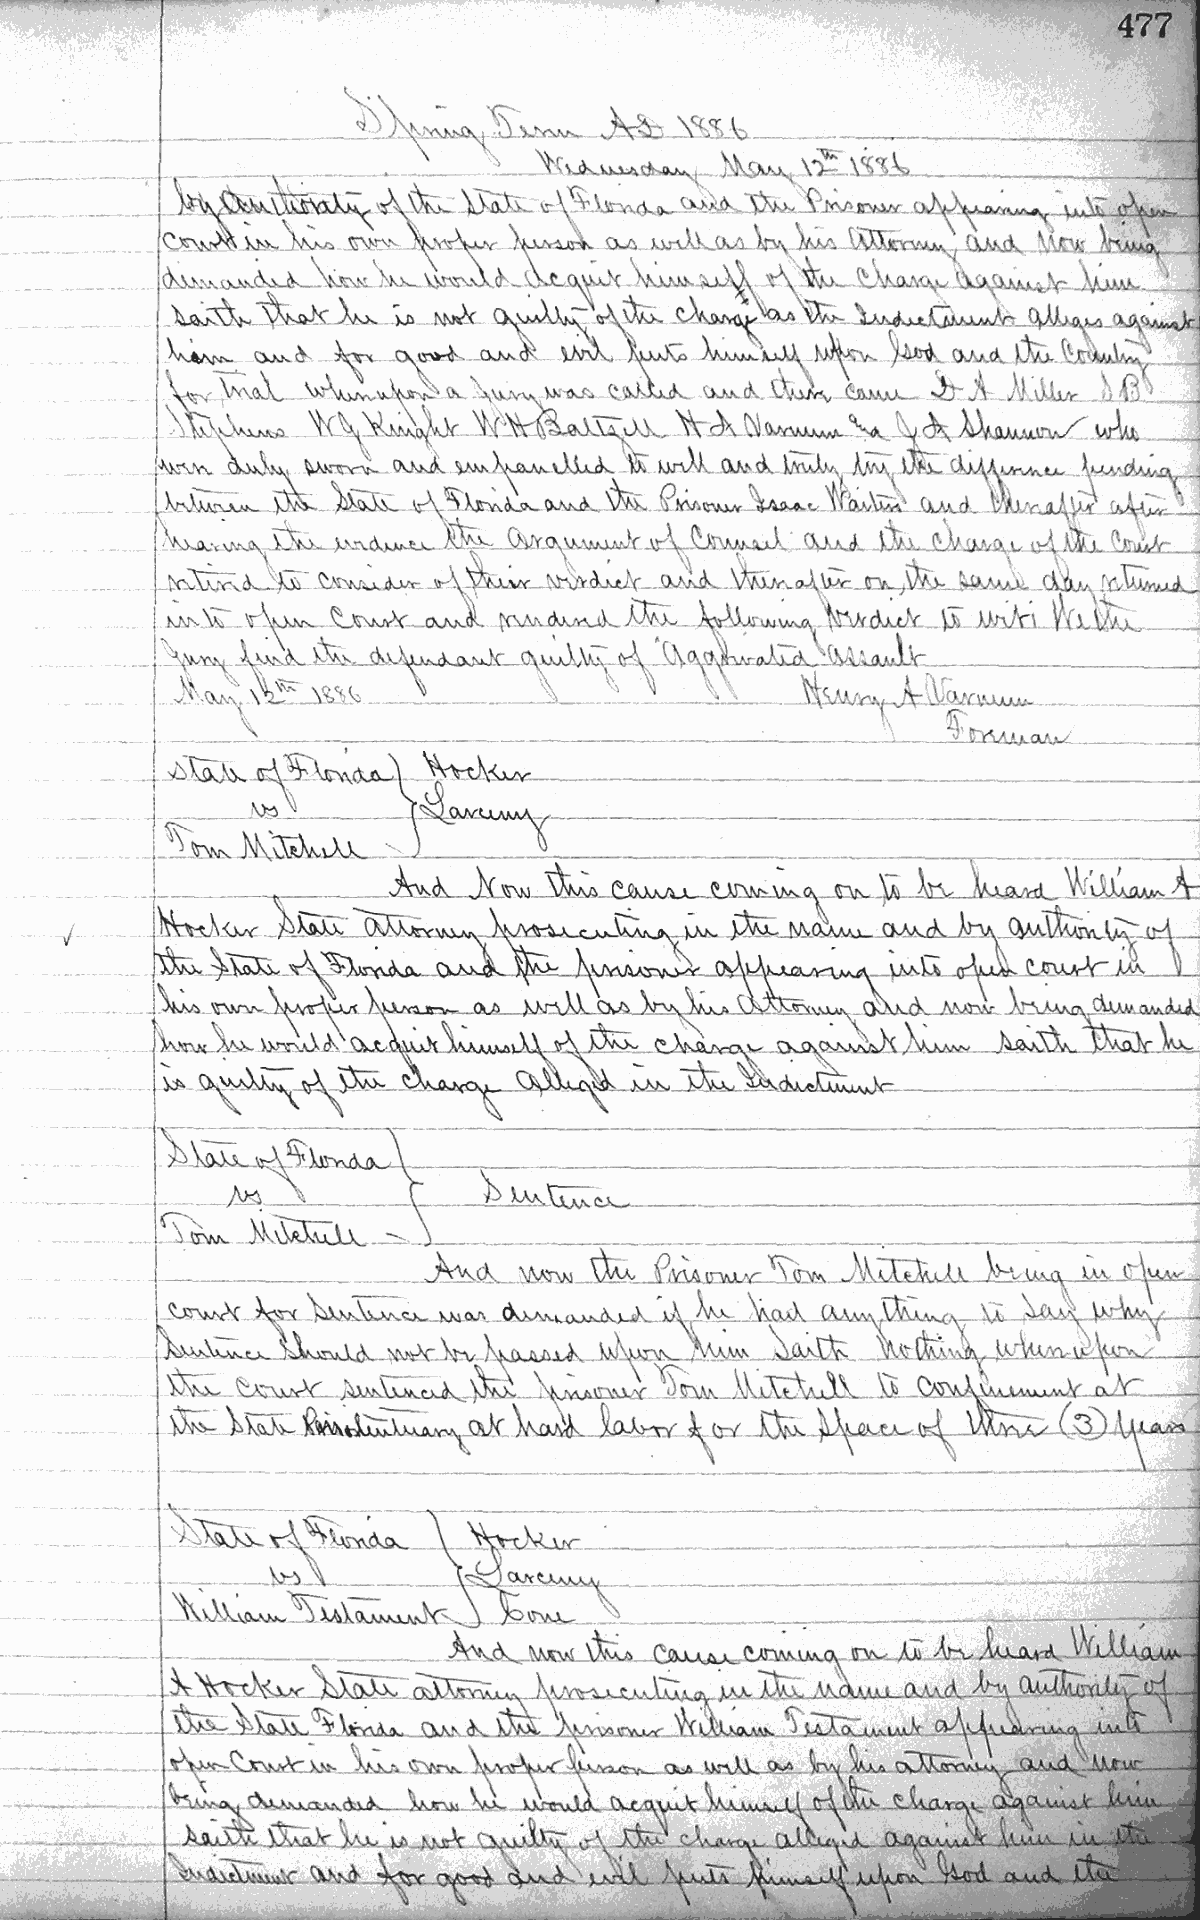 477
Spring Term AD 1886
Wednesday May 12th 1886
by Authority of the State of Florida and the Prisoner appearing into open
Court in his own proper person as well as by his Attorney and Now being
demanded how he would acquit himself of the charge against him
saith that he is not guilty of the charge as the Indictment alleges against
him and for good and evil puts himself upon God and the Country
for trial whereupon a Jury was called and there came D A Miller S B
Stephens W G Knight W H Baltzell H A Varnum & J A Shannon who
were duly sworn and empanelled to well and truly try the difference pending
between the State of Florida and the Prisoner Isaac Waiters and thereafter after
hearing the evidence the argument of Counsel and the charge of the Court
retired to consider of their verdict and thereafter on the same day returned
into open Court and rendered the following Verdict to wit: We the
Jury find the defendant guilty of "Aggravated assault
May 12th 1886 Henry A Varnum
Foreman
State of Florida } Hocker
vs } Larceny
Tom Mitchell
And Now this cause coming on to be heard William A
Hocker State Attorney prosecuting in the name and by authority of
the State of Florida and the prisoner appearing into open court in
his own proper person as well as by his Attorney and now being demanded
how he would acquit himself of the charge against him saith that he
is guilty of the charge Alleged in the Indictment
State of Florida }
vs } Sentence
Tom Mitchell -
And now the Prisoner Tom Mitchell being in open
court for Sentence was demanded if he had anything to say why
Sentence Should not be passed upon him Saith Nothing whereupon
the Court sentenced the prisoner Tom Mitchell to confinement at
the State at hard labor for the Space of three (3) Years
State of Florida } Hocker
vs } Larceny
William Testament } Cone
And now this cause coming on to be heard William
A Hocker State attorney prosecuting in the name and by authority of
the State Florida and the prisoner William Testament appearing into
open Court in his own proper person as well as by his attorney and now
being demanded how he would acquit himself of the charge against him
saith that he is not guilty of the charge alleged against him in the
Indictment and for good and evil puts himself upon God and the